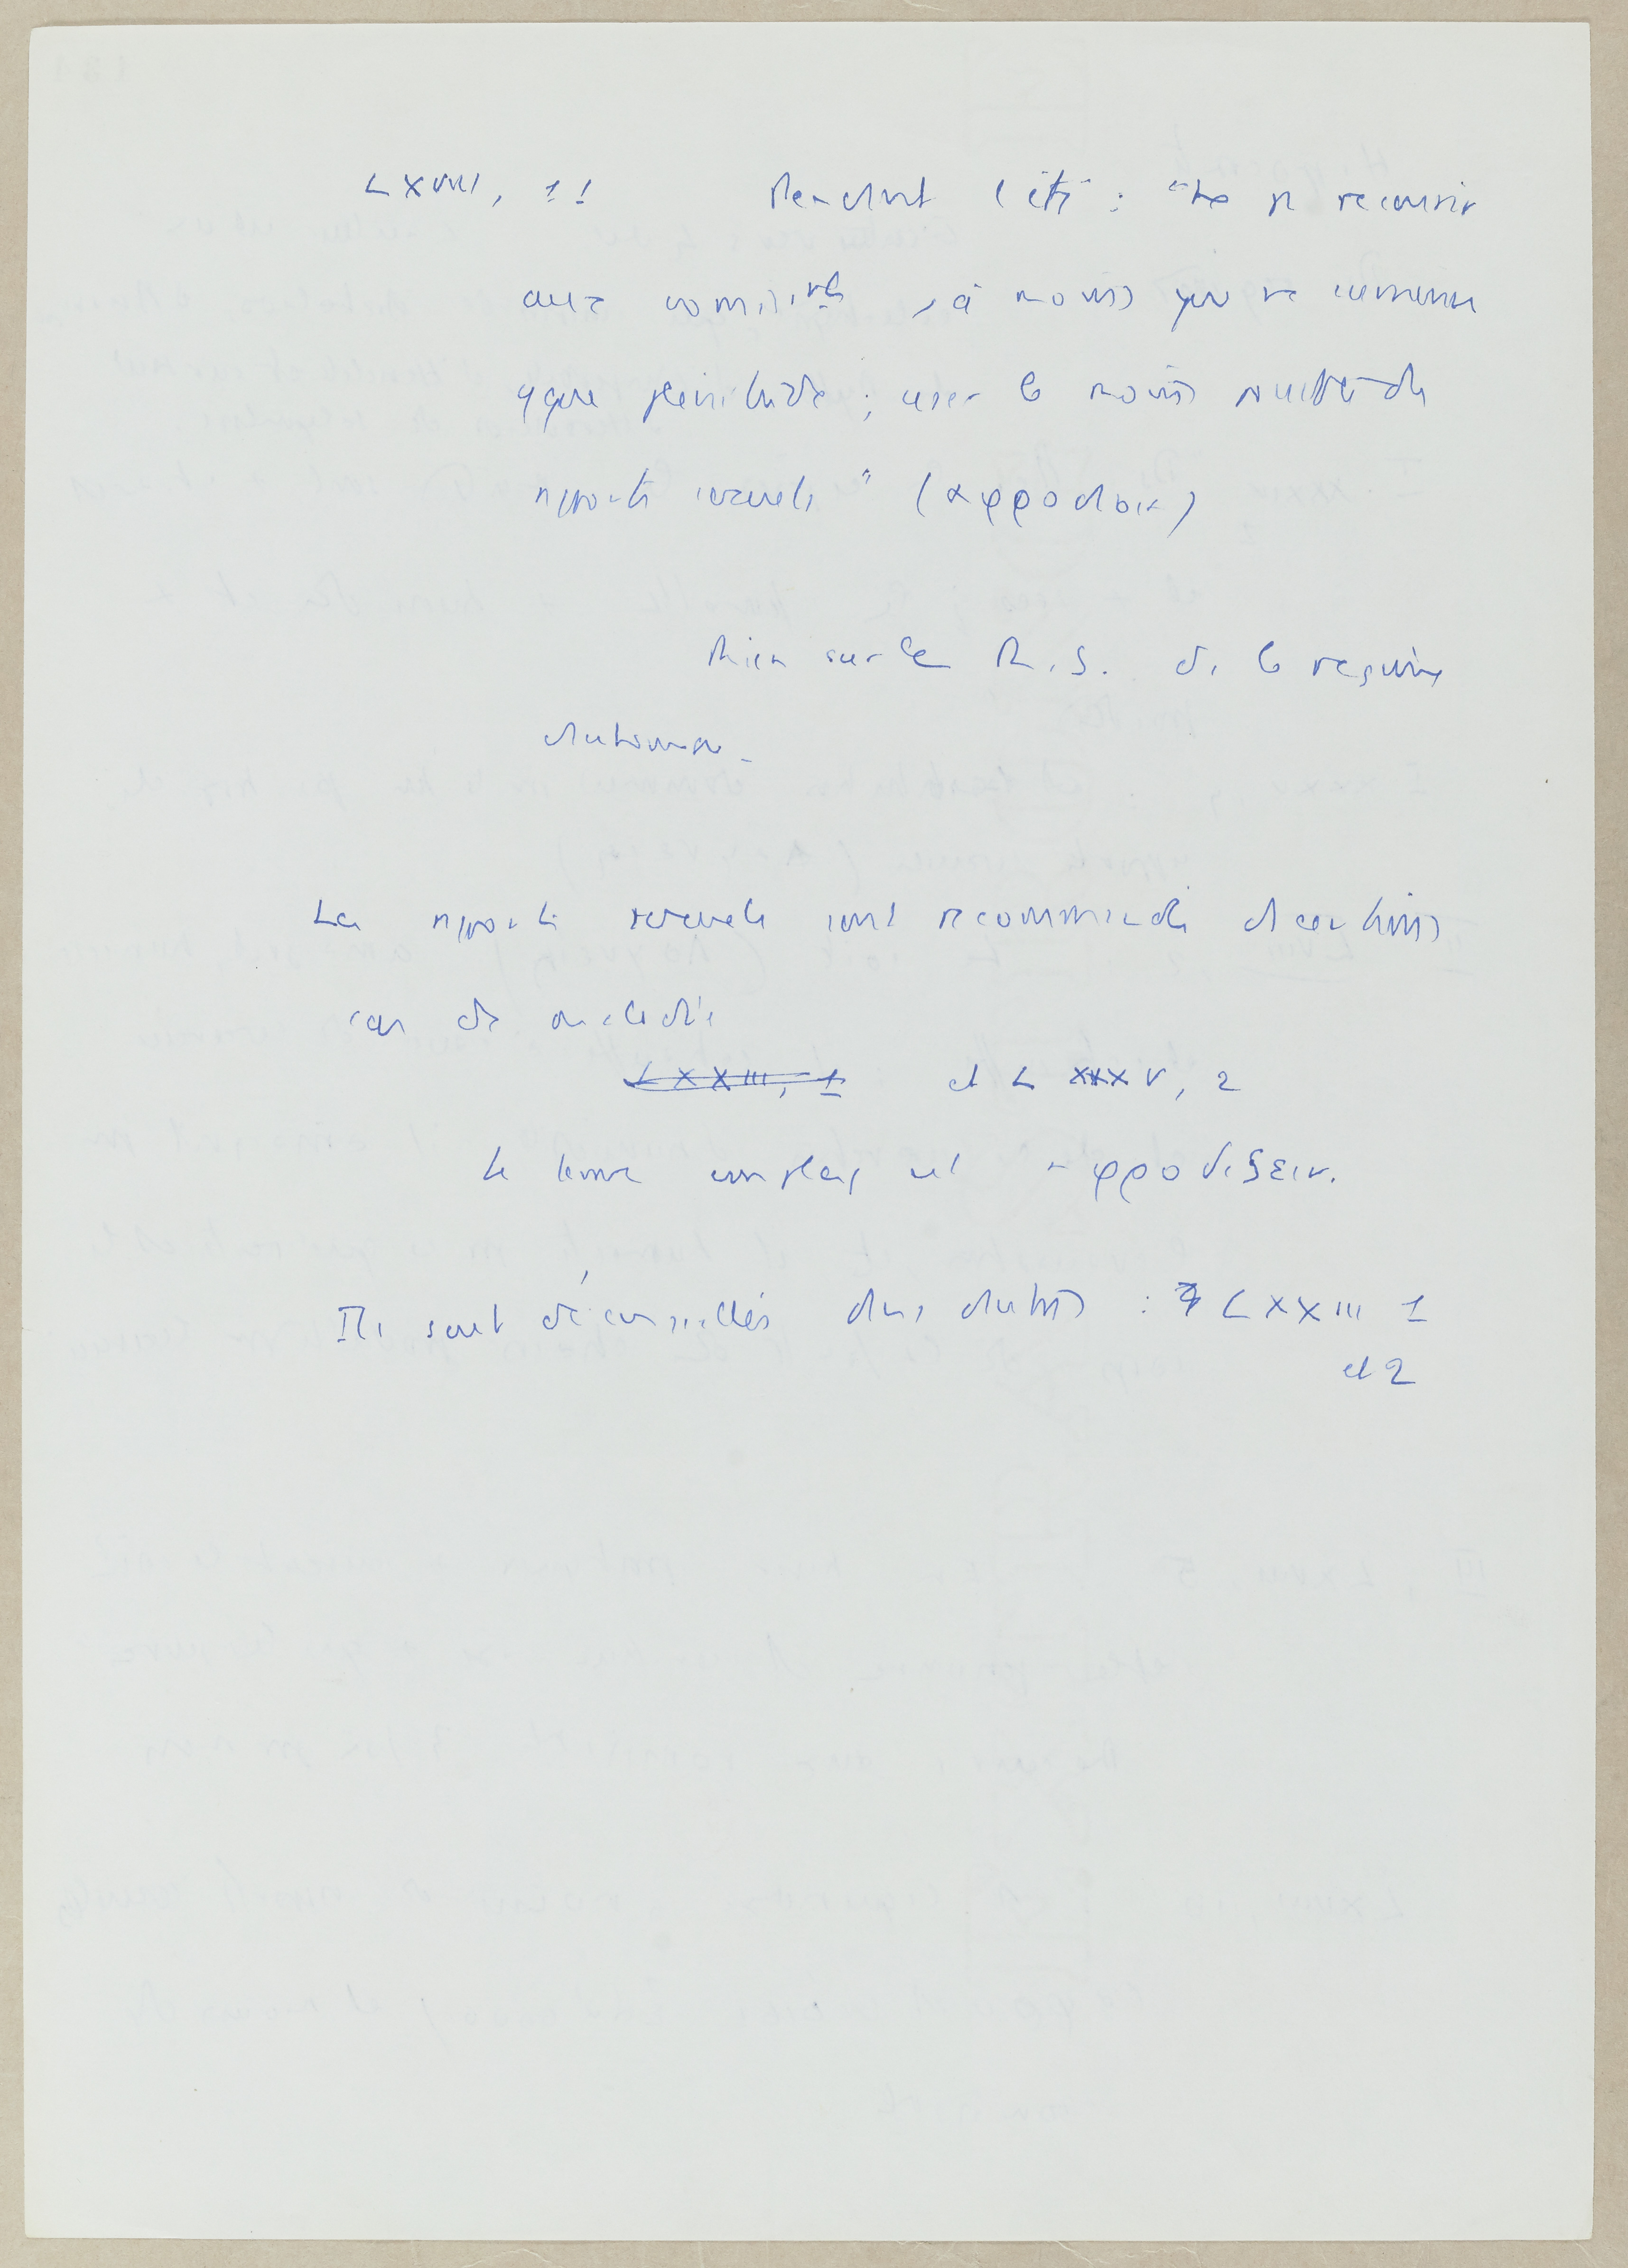 LXVIII, 11 Pendant l'été : "Ne pas recourir
aux vomissts, à moins que ne survienne
qque plénitude ; user le moins possible des
rapports sexuels" (αφροδισια)
Rien sur les R.S. ds le régime
d'automne.
Les rapports sexuels sont recommandés dans certains
cas de maladie
LXXIII, 1 et LXXXV, 2
le terme employé est αφροδιζειν.
Ils sont déconseillés dans d'autres : LXXIII 1
et 2